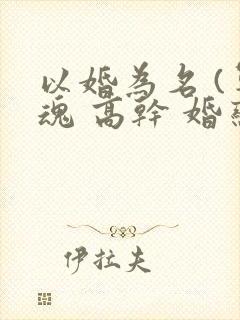 以婚為名(
魂 高幹 婚
伊拉夫